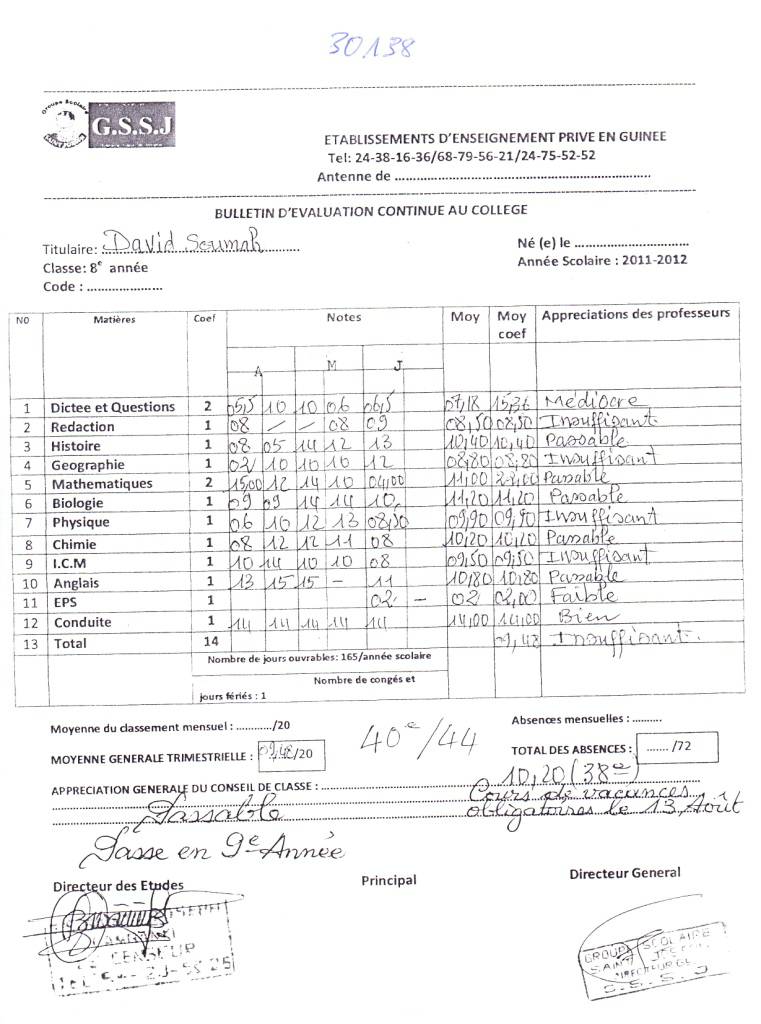 30138
Groupe Scolaire
G.S.S.J
ETABLISSEMENTS D'ENSEIGNEMENT PRIVE EN GUINEE
Tel: 24-38-16-36/68-79-56-21/24-75-52-52
Antenne de ......
BULLETIN D'EVALUATION CONTINUE AU COLLEGE
Titulaire: David Soumah
Né (e) le ......
Classe: 8e année
Année Scolaire : 2011-2012
Code : ......
N0 Matières Coef Notes Moy Moy coef Appreciations des professeurs
A M J
1 Dictee et Questions 2 05,5 10 10 06 06,5 07,18 15,36 Médiocre
2 Redaction 1 08 – – 08 09 08,50 08,50 Insuffisant
3 Histoire 1 08 05 14 12 13 10,40 10,40 Passable
4 Geographie 1 02 10 10 10 12 08,80 08,80 Insuffisant
5 Mathematiques 2 15,00 12 14 10 04,00 11,00 22,00 Passable
6 Biologie 1 09 09 14 14 10, 11,20 11,20 Passable
7 Physique 1 06 10 12 13 08,50 09,90 09,90 Insuffisant
8 Chimie 1 08 12 12 11 08 10,20 10,20 Passable
9 I.C.M 1 10 14 10 10 08 09,50 09,50 Insuffisant
10 Anglais 1 13 15 15 – 11 10,80 10,80 Passable
11 EPS 1 02 – 02 02,00 Faible
12 Conduite 1 14 14 14 14 14 14,00 14,00 Bien
13 Total 14 09,48 Insuffisant.
Nombre de jours ouvrables: 165/année scolaire
Nombre de congés et
jours fériés : 1
Moyenne du classement mensuel : ............/20
Absences mensuelles : ..........
40e/44
MOYENNE GENERALE TRIMESTRIELLE : 09,48/20
TOTAL DES ABSENCES : ....... /72
APPRECIATION GENERALE DU CONSEIL DE CLASSE : 10,20 (38e)
Passable
Cours de vacances
obligatoires le 13 Août
Passe en 9e Année
Directeur des Etudes
Principal
Directeur General
GROUP SCOLAIRE
SAINT